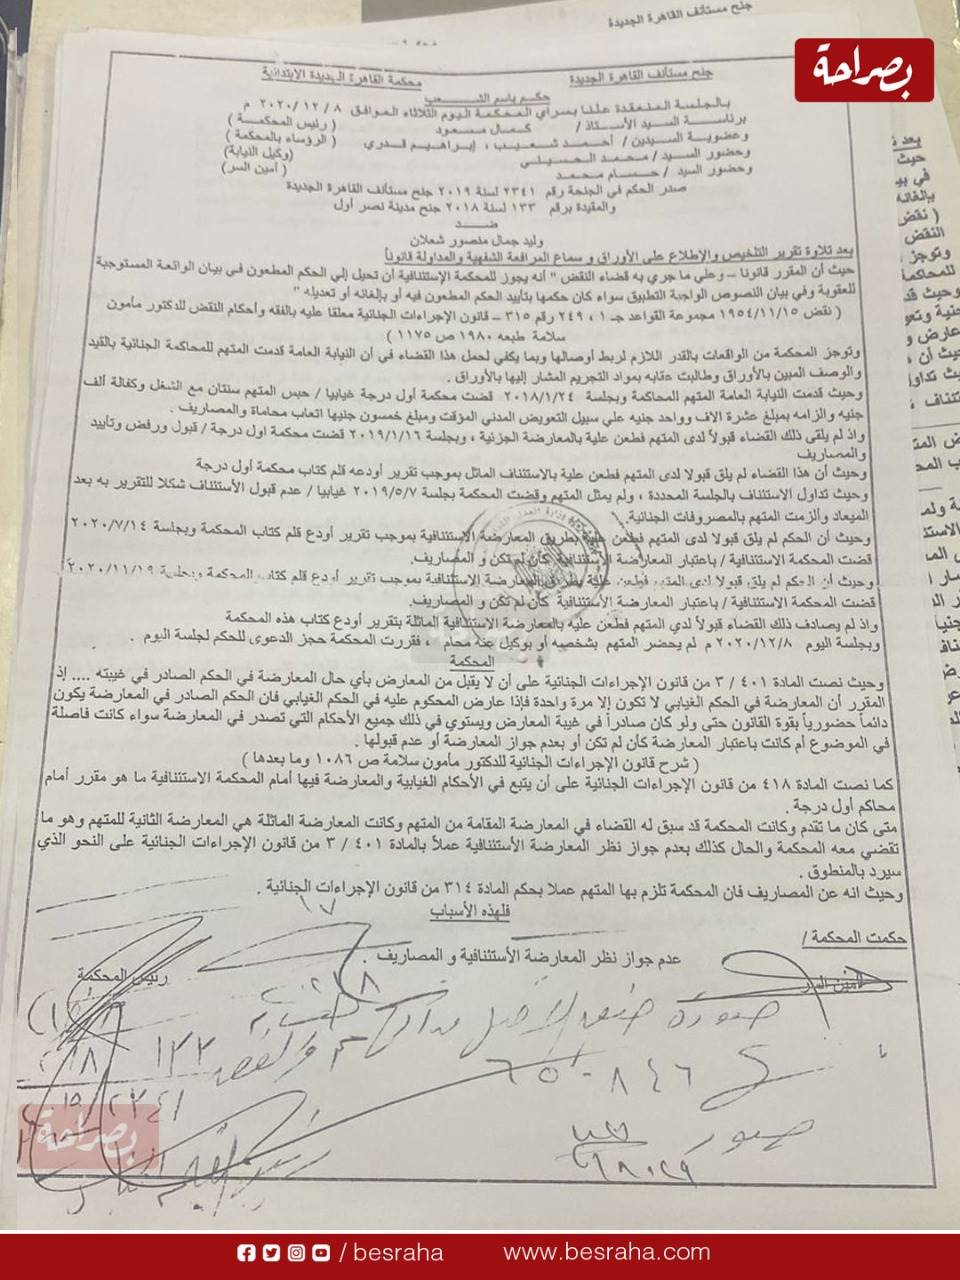 جنح مستأنف القاهرة الجديدة
بصراحة
جنح مستأنف القاهرة الجديدة
محكمة القاهرة الجديدة الابتدائية
حكم باسم الشـــعب
بالجلسة المنعقدة علنا بسراي المحكمة اليوم الثلاثاء الموافق ٨ / ١٢ / ٢٠٢٠ م
برئاسة السيد الأستاذ / كمال مسعود ( رئيس المحكمة )
وعضوية السيدين / أحمد شعيب ، إبراهيم قدري ( الرؤساء بالمحكمة )
وحضور السيد / محمد الحسيني (وكيل النيابة)
وحضور السيد / حسام محمد ( أمين السر)
صدر الحكم في الجنحة رقم ٢٣٤١ لسنة ٢٠١٩ جنح مستأنف القاهرة الجديدة
والمقيدة برقم ١٣٣ لسنة ٢٠١٨ جنح مدينة نصر أول
ضــد
وليد جمال منصور شعلان
بعد تلاوة تقرير التلخيص والإطلاع على الأوراق و سماع المرافعة الشفهية والمداولة قانوناً
حيث أن المقرر قانونا – وعلي ما جري به قضاء النقض " أنه يجوز للمحكمة الإستئنافية أن تحيل إلي الحكم المطعون في بيان الواقعة المستوجبة
للعقوبة وفي بيان النصوص الواجبة التطبيق سواء كان حكمها بتأييد الحكم المطعون فيه أو بإلغائه أو تعديله "
( نقض ١٩٥٤/١١/١٥ مجموعة القواعد جـ ١ ، ٢٤٩ رقم ٣١٥ – قانون الإجراءات الجنائية معلقا عليه بالفقه وأحكام النقض للدكتور مأمون
سلامة طبعه ١٩٨٠ ص ١١٧٥ )
وتوجز المحكمة من الواقعات بالقدر اللازم لربط أوصالها وبما يكفي لحمل هذا القضاء في أن النيابة العامة قدمت المتهم للمحاكمة الجنائية بالقيد
والوصف المبين بالأوراق وطالبت عقابه بمواد التجريم المشار إليها بالأوراق.
وحيث قدمت النيابة العامة المتهم للمحاكمة وبجلسة ٢٠١٨/١/٢٤ قضت محكمة أول درجة غيابيا / حبس المتهم سنتان مع الشغل وكفالة ألف
جنيه والزامه بمبلغ عشرة الاف وواحد جنيه علي سبيل التعويض المدني المؤقت ومبلغ خمسون جنيها اتعاب محاماة والمصاريف .
واذ لم يلقى ذلك القضاء قبولاً لدى المتهم فطعن علية بالمعارضة الجزنية ، وبجلسة ٢٠١٩/١/١٦ قضت محكمة اول درجة / قبول ورفض وتأييد
والمصاريف
وحيث أن هذا القضاء لم يلق قبولا لدى المتهم فطعن علية بالاستئناف الماثل بموجب تقرير أودعه قلم كتاب محكمة أول درجة
وحيث تداول الاستئناف بالجلسة المحددة ، ولم يمثل المتهم وقضت المحكمة بجلسة ٢٠١٩/٥/٧ غيابيا / عدم قبول الأستئناف شكلا للتقرير به بعد
الميعاد وألزمت المتهم بالمصروفات الجنائية.
وحيث أن الحكم لم يلق قبولا لدى المتهم فطعن علية بطريق المعارضة الإستئنافية بموجب تقرير أودع قلم كتاب المحكمة وبجلسة ٢٠٢٠/٧/١٤
قضت المحكمة الاستئنافية / باعتبار المعارضة الأستئنافية كأن لم تكن و المصاريف.
وحيث أن الحكم لم يلق قبولا لدى المتهم فطعن علية بطريق المعارضة الإستئنافية بموجب تقرير أودع قلم كتاب المحكمة وبجلسة ٢٠٢٠/١١/١٩
قضت المحكمة الاستئنافية / باعتبار المعارضة الأستئنافية كأن لم تكن و المصاريف.
واذ لم يصادف ذلك القضاء قبولاً لدي المتهم فطعن عليه بالمعارضة الإستئنافية الماثلة بتقرير أودع كتاب هذه المحكمة
وبجلسة اليوم ٢٠٢٠/١٢/٨ م لم يحضر المتهم بشخصيه أو بوكيل عنة محام ، فقررت المحكمة حجز الدعوى للحكم لجلسة اليوم .
المحكمة
وحيث نصت المادة ٤٠١ / ٣ من قانون الإجراءات الجنائية على أن لا يقبل من المعارض بأي حال المعارضة في الحكم الصادر في غيبته .... إذ
المقرر أن المعارضة في الحكم الغيابي لا تكون إلا مرة واحدة فإذا عارض المحكوم عليه في الحكم الغيابي فان الحكم الصادر في المعارضة يكون
دائماً حضورياً بقوة القانون حتى ولو كان صادراً في غيبة المعارض ويستوي في ذلك جميع الأحكام التي تصدر في المعارضة سواء كانت فاصلة
في الموضوع أم كانت باعتبار المعارضة كأن لم تكن أو بعدم جواز المعارضة أو عدم قبولها .
( شرح قانون الإجراءات الجنائية للدكتور مأمون سلامة ص ١٠٨٦ وما بعدها )
كما نصت المادة ٤١٨ من قانون الإجراءات الجنائية على أن يتبع في الأحكام الغيابية والمعارضة فيها أمام المحكمة الاستئنافية ما هو مقرر أمام
محاكم أول درجة .
متى كان ما تقدم وكانت المحكمة قد سبق له القضاء في المعارضة المقامة من المتهم وكانت المعارضة الماثلة هي المعارضة الثانية للمتهم وهو ما
تقضي معه المحكمة والحال كذلك بعدم جواز نظر المعارضة الأستئنافية عملاً بالمادة ٤٠١ / ٣ من قانون الإجراءات الجنائية على النحو الذي
سيرد بالمنطوق .
وحيث انه عن المصاريف فان المحكمة تلزم بها المتهم عملا بحكم المادة ٣١٤ من قانون الإجراءات الجنائية .
فلهذه الأسباب
حكمت المحكمة /
عدم جواز نظر المعارضة الأستئنافية و المصاريف .
أمين السر
رئيس المحكمة
صورة ضوئية
١٣٣
٢٣٤١
٦٥٠٨٤٦
بصراحة
/ besraha
www.besraha.com